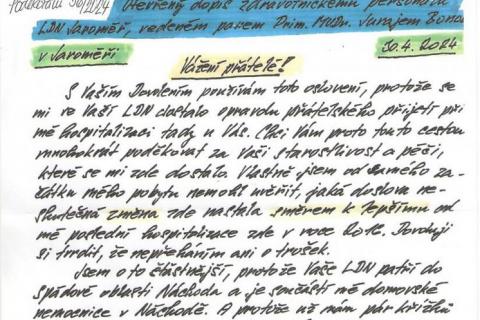 Poděkování 30/2024
Otevřený dopis zdravotnickému personálu
LDN Jaroměř, vedeném panem Prim. MUDr. Jurajem
v Jaroměři 30.4.2024
Vážení přátelé!
S Vaším Dovolením používám toto oslovení, protože se
mi ve Vaší LDN dostalo opravdu přátelského přijetí při
mé hospitalizaci tady u Vás. Chci Vám proto touto cestou
mnohokrát poděkovat za Vaši starostlivost a péči,
které se mi zde dostalo. Vlastně jsem od samého za-
čátku mého pobytu nemohl uvěřit, jaká doslova ne-
skutečná změna zde nastala směrem k lepšímu od
mé poslední hospitalizace zde v roce 2012. Dovoluji
si tvrdit, že nepřeháním ani o trošek.
Jsem o to šťastnější, protože Vaše LDN patří do
spádové oblasti Náchoda a je součástí mé domovské
nemocnice v Náchodě. A protože už mám pár křížků